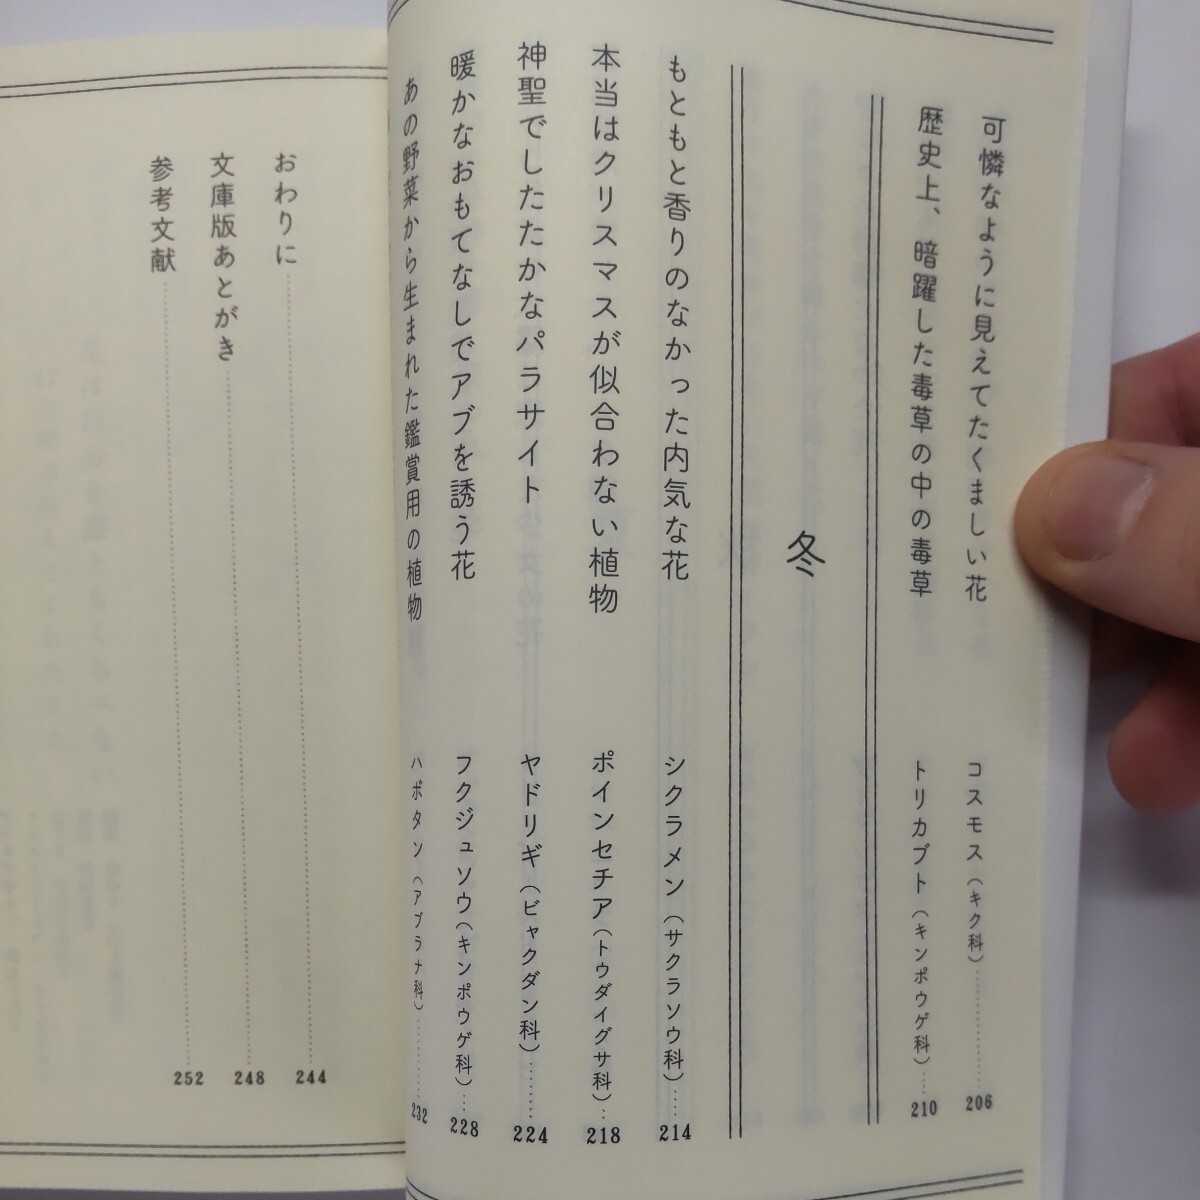 可憐なように見えてたくましい花 コスモス（キク科）………… 206
歴史上、暗躍した毒草の中の毒草 トリカブト（キンポウゲ科）…… 210
冬
もともと香りのなかった内気な花 シクラメン（サクラソウ科）…… 214
本当はクリスマスが似合わない植物 ポインセチア（トウダイグサ科）… 218
神聖でしたたかなパラサイト ヤドリギ（ビャクダン科）……… 224
暖かなおもてなしでアブを誘う花 フクジュソウ（キンポウゲ科）… 228
あの野菜から生まれた鑑賞用の植物 ハボタン（アブラナ科）………… 232
おわりに………… 244
文庫版あとがき………… 248
参考文献………… 252